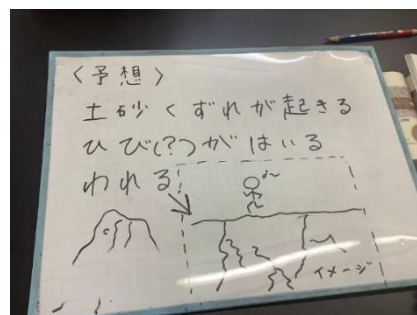 〈予想〉
土砂くずれが起きる
ひび(?)がはいる
われる
イメージ